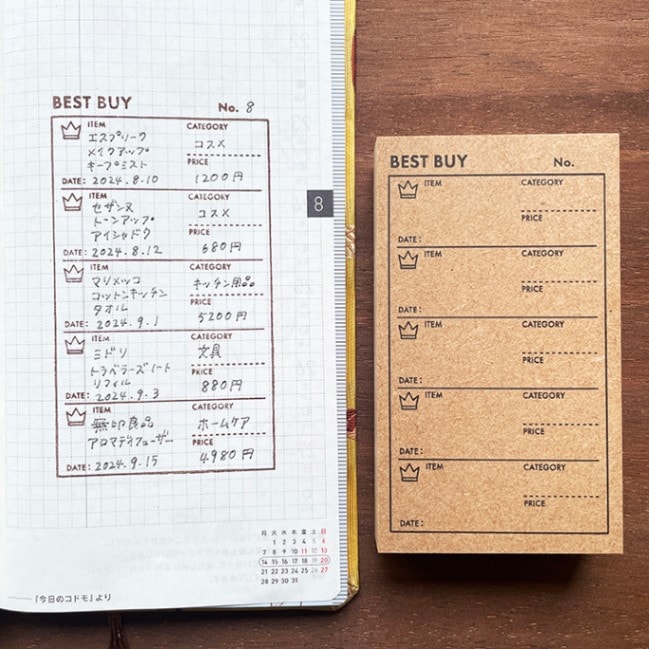 BEST BUY No. 8
ITEM CATEGORY
エスプリーク
メイクアップ
キープミスト
コスメ
PRICE
DATE: 2024.8.10 1200円
ITEM CATEGORY
セザンヌ
トーンアップ
アイシャドウ
コスメ
PRICE
DATE: 2024.8.12 680円
ITEM CATEGORY
マリメッコ
コットンキッチン
タオル
キッチン用品
PRICE
DATE: 2024.9.1 5200円
ITEM CATEGORY
ミドリ
トラベラーズノート
リフィル
文具
PRICE
DATE: 2024.9.3 880円
ITEM CATEGORY
無印良品
アロマディフューザー
ホームケア
PRICE
DATE: 2024.9.15 4980円
8
月 火 水 木 金 土 日
1 2 3 4 5 6
7 8 9 10 11 12 13
14 15 16 17 18 19 20
21 22 23 24 25 26 27
28 29 30 31
『今日のコドモ』より
BEST BUY No.
ITEM CATEGORY
PRICE
DATE:
ITEM CATEGORY
PRICE
DATE:
ITEM CATEGORY
PRICE
DATE:
ITEM CATEGORY
PRICE
DATE:
ITEM CATEGORY
PRICE
DATE: